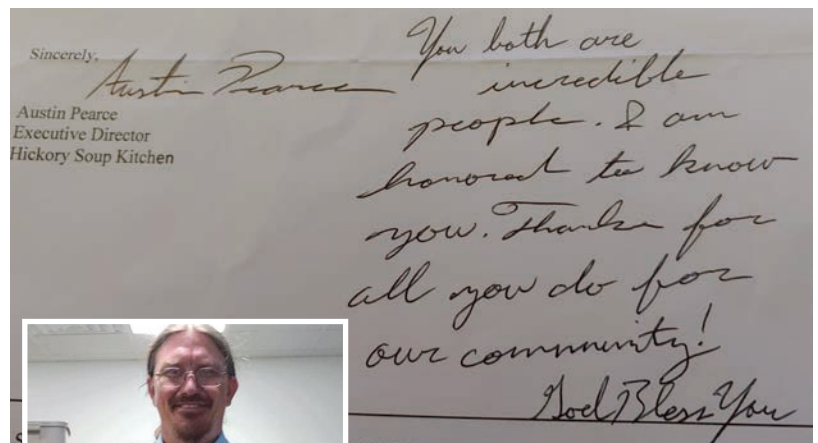 Sincerely,
Austin Pearce
Austin Pearce
Executive Director
Hickory Soup Kitchen
You both are
incredible
people. I am
honored to know
you. Thanks for
all you do for
our community!
God Bless You